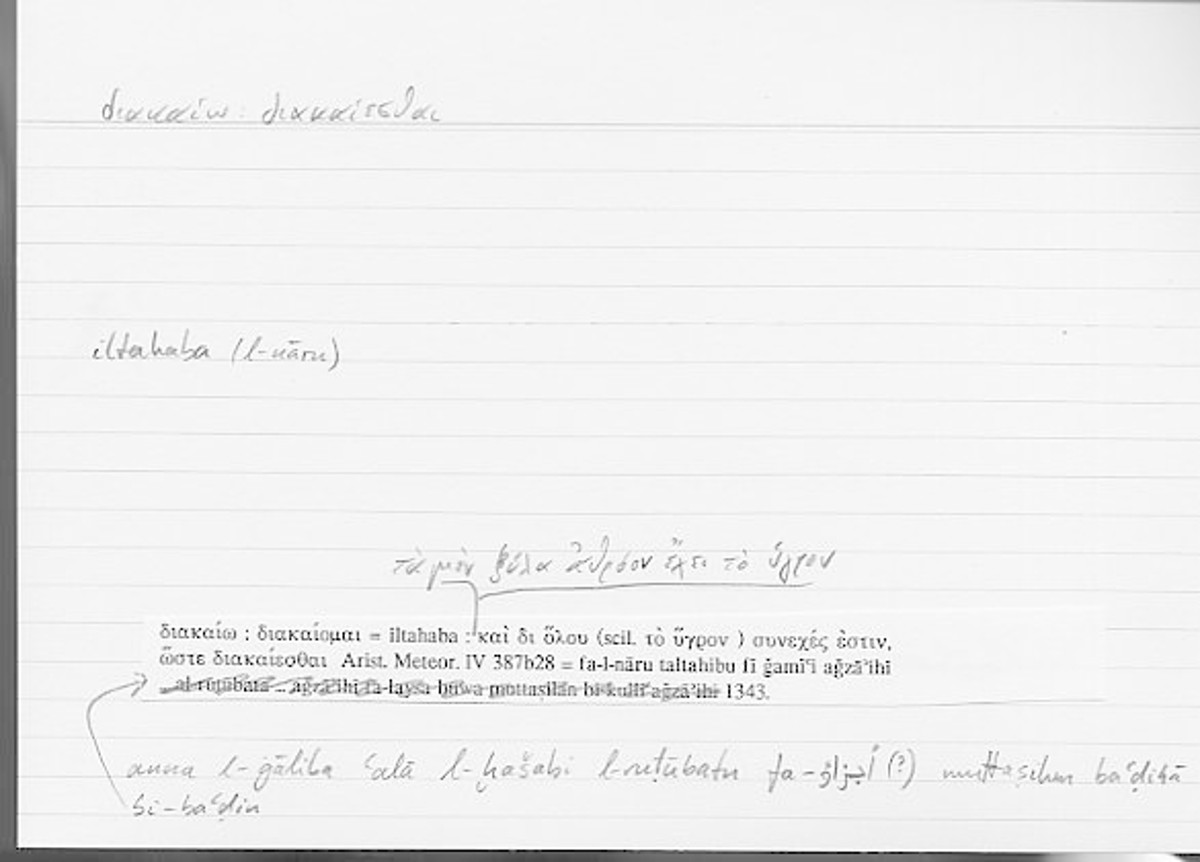 διακαίω : διακαίεσθαι
iltahaba (l-nāru)
τὰ μὲν ξύλα ἀθρόον ἔχει τὸ ὑγρόν
διακαίω : διακαίομαι = iltahaba : καὶ δι ὅλου (scil. τὸ ὕγρον ) συνεχές ἐστιν,
ὥστε διακαίεσθαι Arist. Meteor. IV 387b28 = fa-l-nāru taltahibu fī ǧamīʿi aǧzāʾihi
al-ruṭūbata ... aǧzāʾihi fa-laysa huwa muttaṣilan bi-kulli aǧzāʾihi 1343.
anna l-ġāliba ʿalā l-ḫašabi l-ruṭūbatu fa-أجزاؤ (?) muttaṣilun baʿḍihā
bi-baʿḍin